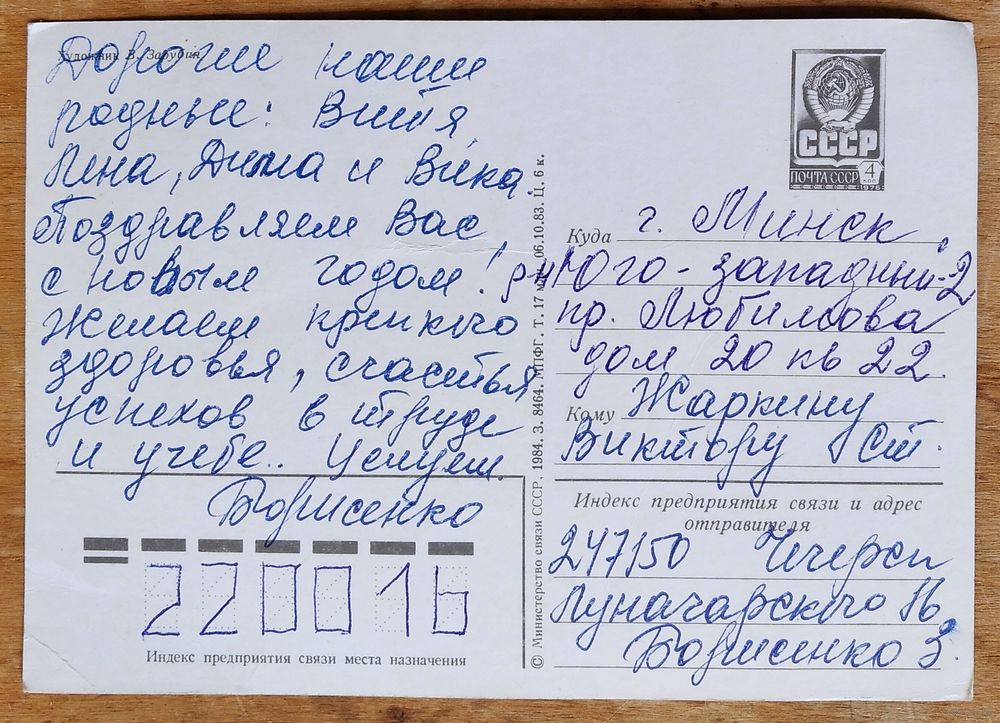 Художник В. Зарубин
Дорогие наши
родные: Витя
Лена, Дима и Вика.
Поздравляем Вас
с новым годом!
Желаем крепкого
здоровья, счастья
успехов в труде
и учебе.. Целуем.
Борисенко
220016
Индекс предприятия связи места назначения
© Министерство связи СССР. 1984. З. 8464. МПФГ. Т. 17 млн. 06.10.83. Ц. 6 к.
СССР
ПОЧТА СССР 4 КОП
1976
Куда г. Минск,
р-н Юго-западный-2
пр. Любимова
дом 20 кв 22.
Кому Жаркину
Виктору Ст.
Индекс предприятия связи и адрес
отправителя
247150 Чечерск
Луначарского
Борисенко З.